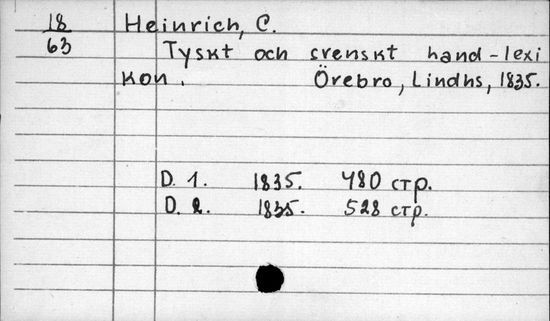 18
63
Heinrich, C.
Tyskt och svenskt hand-lexi
kon. Örebro, Lindhs, 1835.
D. 1. 1835. 480 стр.
D. 2. 1835. 528 стр.